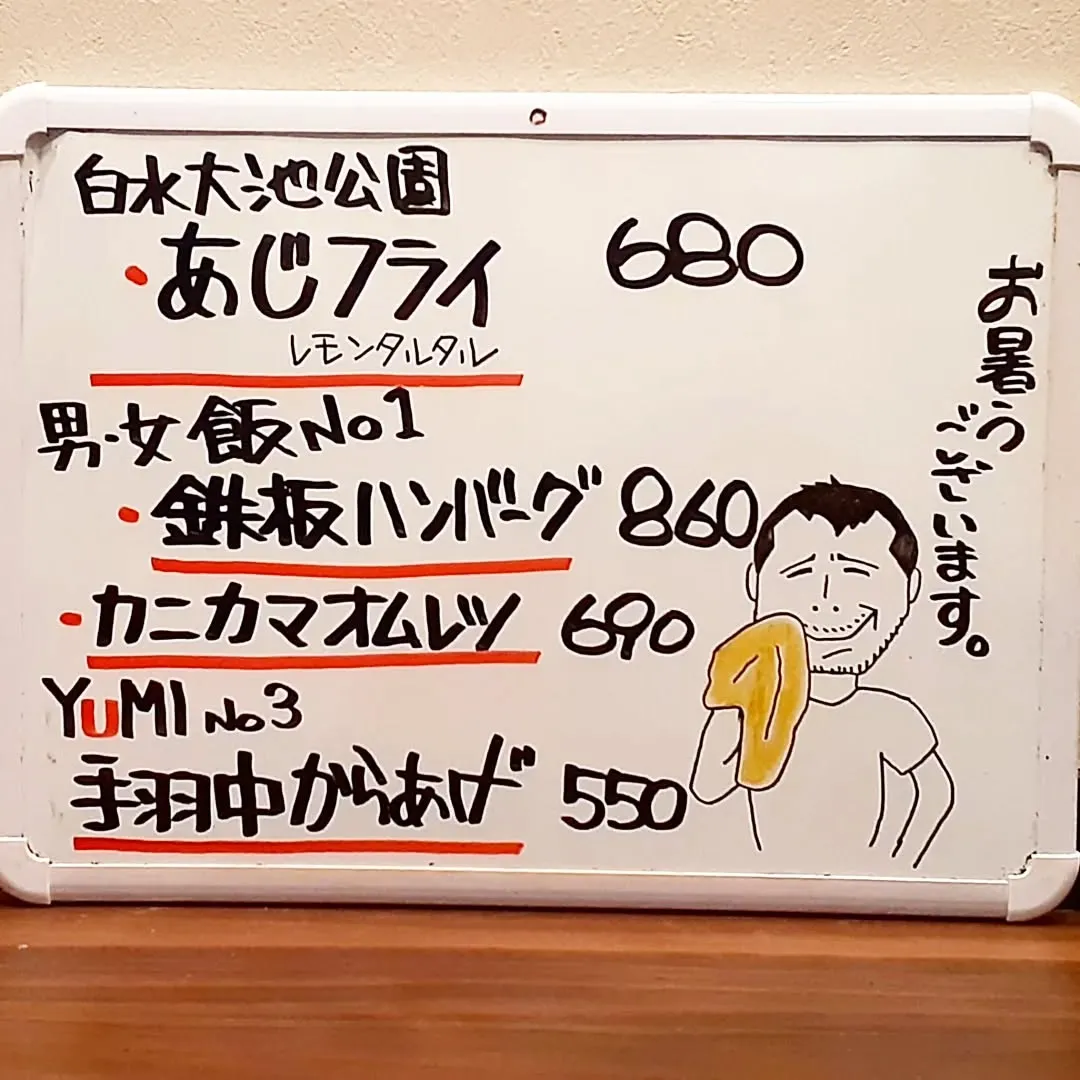 白水大池公園
・あじフライ 680
レモンタルタル
男・女飯No1
・鉄板ハンバーグ 860
・カニカマオムレツ 690
YUMI No3
手羽中からあげ 550
お暑う
ございます。